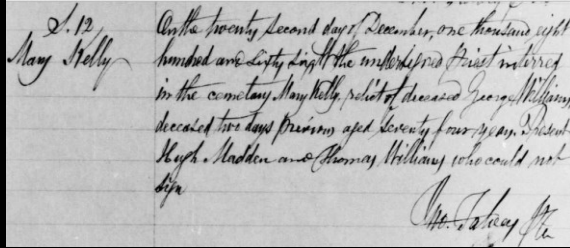 S. 12
Mary Kelly
On the twenty second day of December, one thousand eight
hundred and sixty eight the undersigned Priest interred
in the cemetary Mary Kelly, relict of deceased George Williams
deceased two days previous aged seventy four years. Present
Hugh Madden and Thomas Williams who could not
sign
Jno. Fahey Ptr